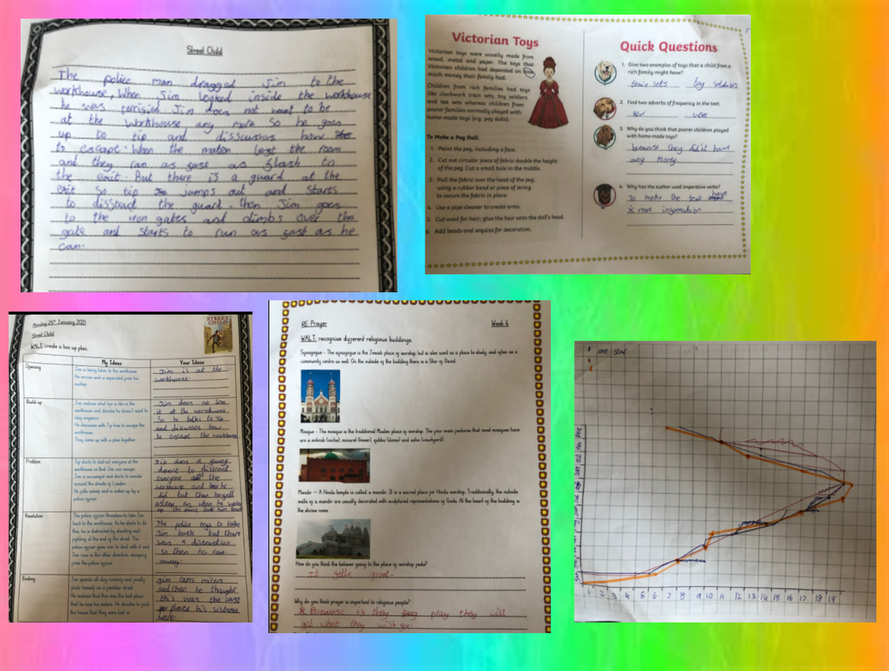 Street Child
The police man dragged Jim to the
workhouse. When Jim looked inside the workhouse
he was terrified Jim does not want to be
at the workhouse any more so he goes
up to tip and disscusses how
to escape. When the matron left the room
and they run as fast as flash to
the exit. But there is a guard at the
exit so tip jumps out and starts
to disstract the guard. then Jim goes
to the iron gates and climbs over the
gate and starts to run as fast as he
can.
Victorian Toys
Victorian toys were usually made from
wood, metal and paper. The toys that
Victorian children had depended on how
much money their family had.
Children from rich families had toys
like clockwork train sets, toy soldiers
and tea sets whereas children from
poorer families normally played with
home-made toys (e.g. peg dolls).
To Make a Peg Doll:
1. Paint the peg, including a face.
2. Cut out circular piece of fabric double the height
of the peg. Cut a small hole in the middle.
3. Pull the fabric over the head of the peg,
using a rubber band or piece of string
to secure the fabric in place.
4. Use a pipe cleaner to create arms.
5. Cut wool for hair; glue the hair onto the doll's head.
6. Add beads and sequins for decoration.
Quick Questions
1. Give two examples of toys that a child from a
rich family might have?
train sets toy soldiers
2. Find two adverbs of frequency in the text
3. Why do you think that poorer children played
with home-made toys?
because they did'nt have
any money
4. Why has the author used imperative verbs?
To make the text
Monday 25th January 2021
Street Child
WALT: create a box up plan.
My Ideas Your Ideas
Opening
Jim is being taken to the workhouse.
He arrives and is separated from his
mother.
Jim is at the
workhouse
Build-up
Jim realises what life is like in the
workhouse and decides he doesn't want to
stay anymore.
He discusses with Tip how to escape the
workhouse.
They come up with a plan together.
Jim does not like
it at the workhouse
So he talks to Tip
and disscuses how
to escape the workhouse
Problem
Tip starts to distract everyone at the
workhouse so that Jim can escape.
Jim is successful and starts to wander
around the streets of London.
He falls asleep and is woken up by a
police officer.
Tip does a funny
dance to disstract
everyone at the
workhouse and he
did but then he fell
Resolution
The police officer threatens to take Jim
back to the workhouse. As he starts to do
this, he is distracted by shouting and
fighting at the end of the street. The
police officer goes over to deal with it and
Jim runs in the other direction, escaping
from the police officer.
The police trys to take
Jim back but there
was a disstraction
so then he ran
away.
Ending
Jim spends all day running and finally
finds himself on a familiar street.
He realises that this was the last place
that he saw his sisters. He decides to find
the house that they were last in.
Jim runs miles
and then he thought
this was the last
place his sisters
were
RE Prayer Week 4
WALT: recognise different religious buildings
Synagogue - The synagogue is the Jewish place of worship, but is also used as a place to study, and often as a
community centre as well. On the outside of the building there is a Star of David.
Mosque - The mosque is the traditional Muslim place of worship. The four main features that most mosques have
are a mihrab (niche), minaret (tower), qubba (dome) and sahn (courtyard).
Mandir - A Hindu temple is called a mandir. It is a sacred place for Hindu worship. Traditionally, the outside
walls of a mandir are usually decorated with sculptured representations of Gods. At the heart of the building is
the shrine room.
How do you think the believer going to the place of worship feels?
It feels great.
Why do you think prayer is important to religious people?
Because if they pray they will
get what they wish for.
1 2 3 4 5 6 7 8 9 10 11 12 13 14 15 16 17 18 19